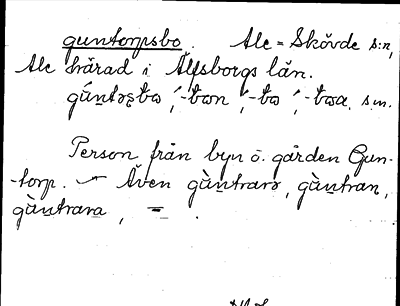 guntorpsbo. Ale = Skövde s:n,
Ale härad i Älfsborgs län.
gùntəʂbo, -bon, -bo, -boa, s.m.
Person från byn o. gården Gun-
torp. — Även gùntrarə, gùntran,
gùntrara, =.